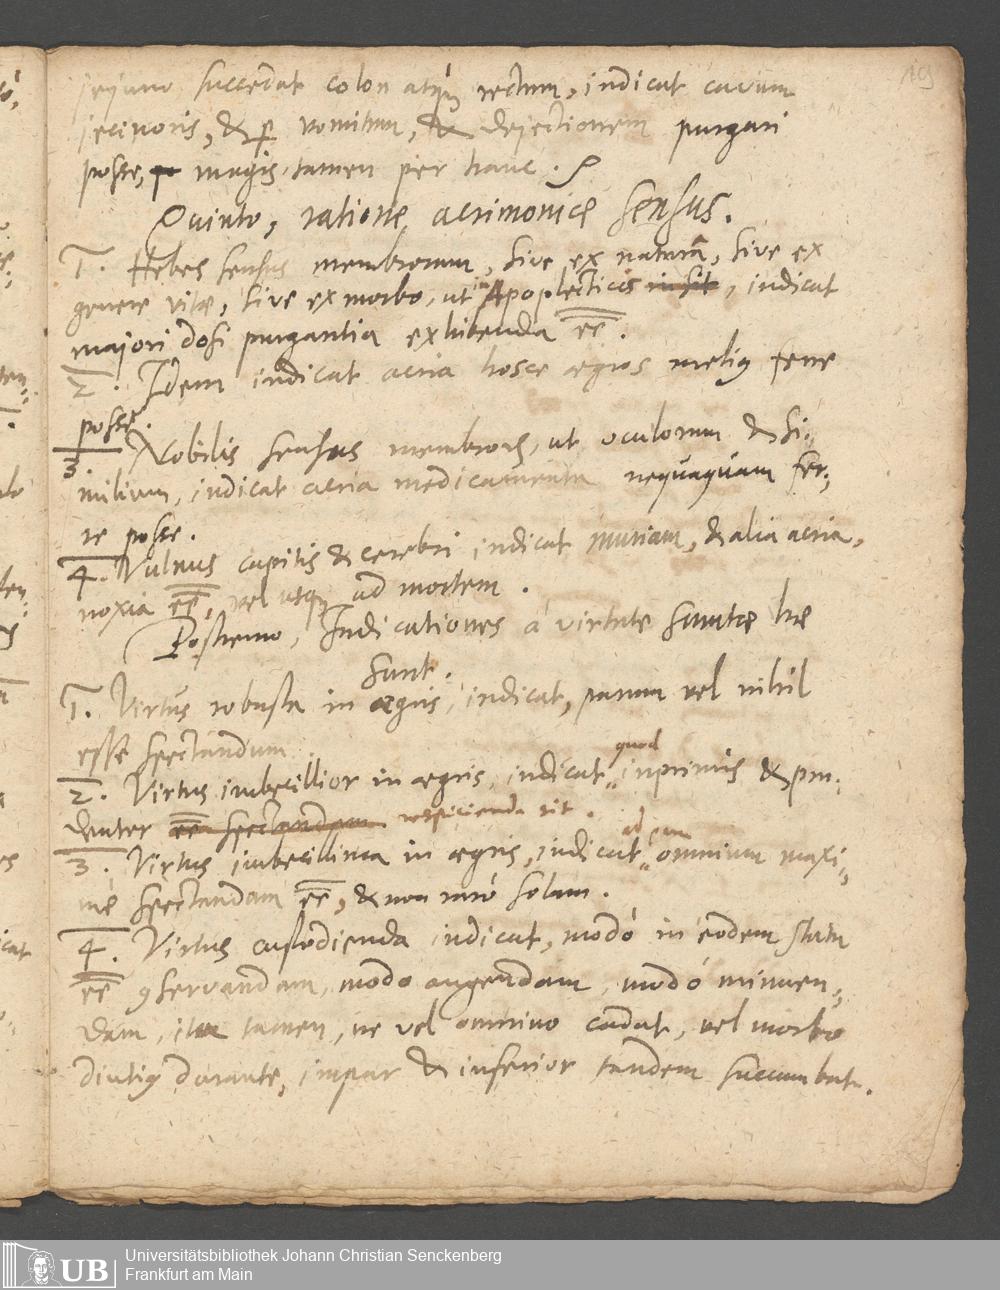 jejuno succedat colon atq́ꝫ rectum, indicat cavum
jecinoris, & ꝑ vomitum, & dejectionem purgari
posse, magis tamen per hanc.
Quinto, ratione acrimoniæ sensus.
1. Hebes sensus membrorum, sive ex naturâ, sive ex
genere vitæ, sive ex morbo, ut in Apoplecticis insit, indicat
majori dosi purgantia exhibenda e̅e̅.
2. Idem indicat acria hosce ægros meliꝰ ferre
posse.
3. Nobilis sensus membrorū, ut oculorum & si-
milium, indicat acria medicamenta nequaquam fer-
re posse.
4. Vulnus capitis & cerebri indicat muriam, & alia acria,
noxia e̅e̅, vel usqꝫ ad mortem.
Postremo, Indicationes á virtute sumtæ hæ
sunt.
1. Virtus robusta in ægris, indicat, parum vel nihil
esse spectandum.
quod
2. Virtus imbecillior in ægris, indicat, inprimis & pru-
denter e̅e̅ spectandam respicienda sit.
ad eam
3. Virtus imbecillima in ægris, indicat, omnium maxi-
mè spectandam e̅e̅, & non rarò solam.
4. Virtus custodienda indicat, modò in eodem statu
e̅e̅ ꝯservandam, modo augendam, modò minuen-
dam, ita tamen, ne vel omnino cadat, vel morbo
diutiꝰ durante, impar & inferior tandem succumbat.
UB
Universitätsbibliothek Johann Christian Senckenberg
Frankfurt am Main